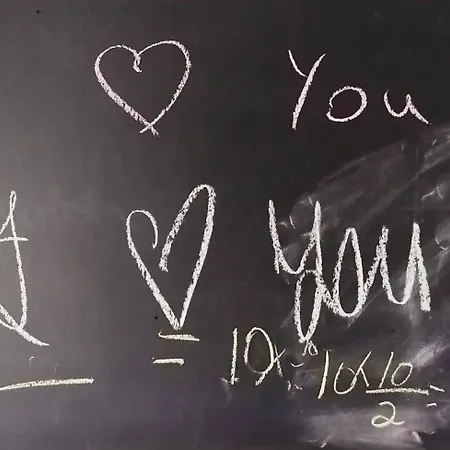 ♡ You
I ♡ you
10x 10x10/2 =